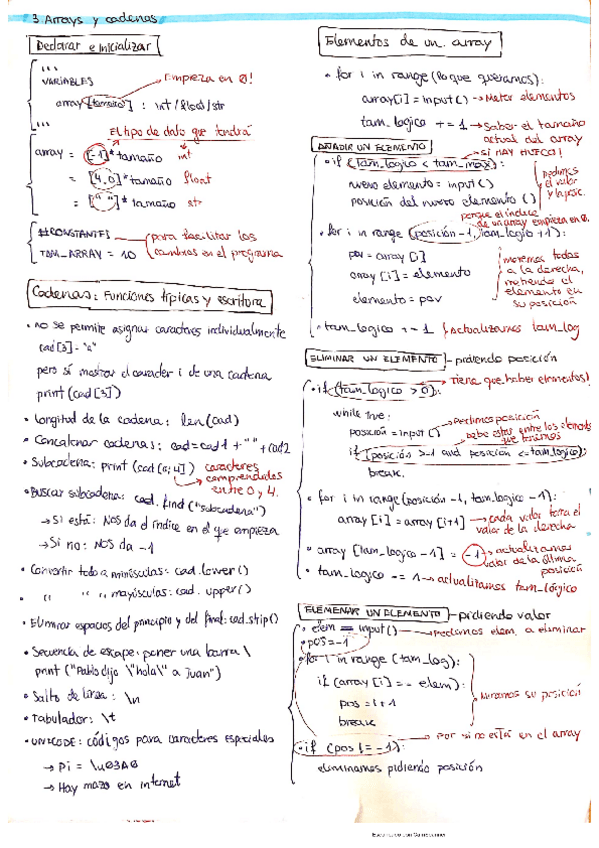 3 Arrays y cadenas
Declarar e Inicializar
...
VARIABLES
Empieza en 0!
array [tamaño] : int / float / str
...
El tipo de dato que tendrá
array = [-1]*tamaño int
= [4,0]*tamaño float
= [" "]*tamaño str
#CONSTANTES
TAM_ARRAY = 10
para facilitar los
cambios en el programa
Cadenas: Funciones típicas y escritura
• no se permite asignar caracteres individualmente
cad[3]="a"
pero sí mostrar el caracter i de una cadena
print(cad[3])
• Longitud de la cadena: len(cad)
• Concatenar cadenas: cad=cad1 + " " + cad2
• Subcadena: print (cad[0:4]) caracteres
comprendidos
entre 0 y 4.
• Buscar subcadena: cad.find("subcadena")
→ Si está: Nos da el índice en el que empieza
→ Si no: Nos da -1
• Convertir todo a minúsculas: cad.lower()
• " " " mayúsculas: cad.upper()
• Eliminar espacios del principio y del final: cad.strip()
• Secuencia de escape: poner una barra \
print ("Pablo dijo \"hola\" a Juan")
• Salto de línea: \n
• Tabulador: \t
• UNICODE: códigos para caracteres especiales
→ Pi = \u03A0
→ Hay mazo en internet
Elementos de un array
• for i in range (lo que queramos):
array[i] = input() → Meter elementos
tam_logico += 1 → Saber el tamaño
actual del array
AÑADIR UN ELEMENTO
SI HAY HUECO!
• if (tam_logico < tam_max):
nuevo elemento = input()
posición del nuevo elemento ()
pedimos
el valor
y la posic.
porque el índice
de un array empieza en 0.
• for i in range (posición -1, tam_logico +1):
pov = array [i]
array [i] = elemento
elemento = pov
movemos todos
a la derecha,
metiendo el
elemento en
su posición
• tam_logico += 1 } actualizamos tam_log
ELIMINAR UN ELEMENTO - pidiendo posición
• if (tam_logico > 0): Tiene que haber elementos!
while true:
posición = input() → Pedimos posición
debe estar entre los elementos
que tenemos
if [posición >-1 and posición <=tam_logico):
break.
• for i in range (posición -1, tam_logico -1):
array [i] = array [i+1] → cada valor toma el
valor de la derecha
• array [tam_logico -1] = -1 → actualizamos
valor de la última
posición
• tam_logico -= 1 → actualizamos tam_lógico
ELEMENAR UN ELEMENTO - pidiendo valor
• elem = input() → Pedimos elem. a eliminar
• pos = -1
• for i in range (tam_log):
if (array[i] == elem):
pos = i+1
break
miramos su posición
• if (pos != -1): Por si no está en el array
eliminamos pidiendo posición
Escaneado con CamScanner